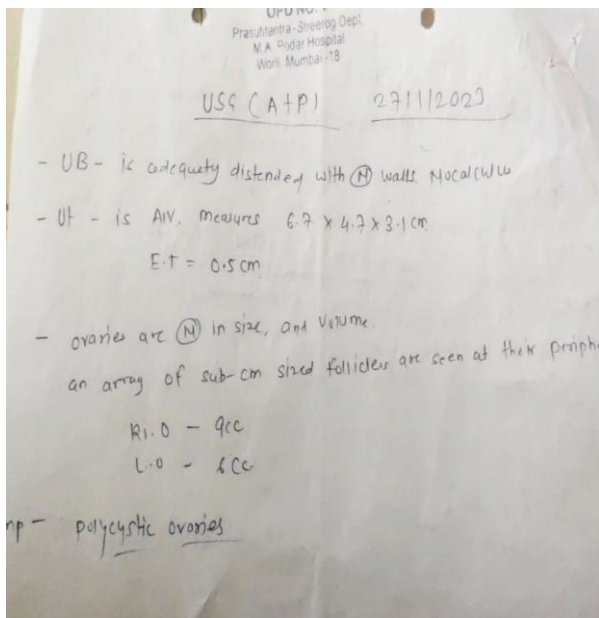 OPD NO.
Prasutitantra-Streerog Dept.
M.A. Podar Hospital
Worli Mumbai-18
USG (A+P) 27/11/2023
- UB - is adequety distended with (N) walls. No calculus
- Ut - is A/V. measures 6.7 x 4.7 x 3.1 cm
E.T = 0.5 cm
- ovaries are (N) in size, and volume.
an array of sub-cm sized follicles are seen at their periphe
Ri.O - 9cc
L.O - 6cc
mp - polycystic ovaries